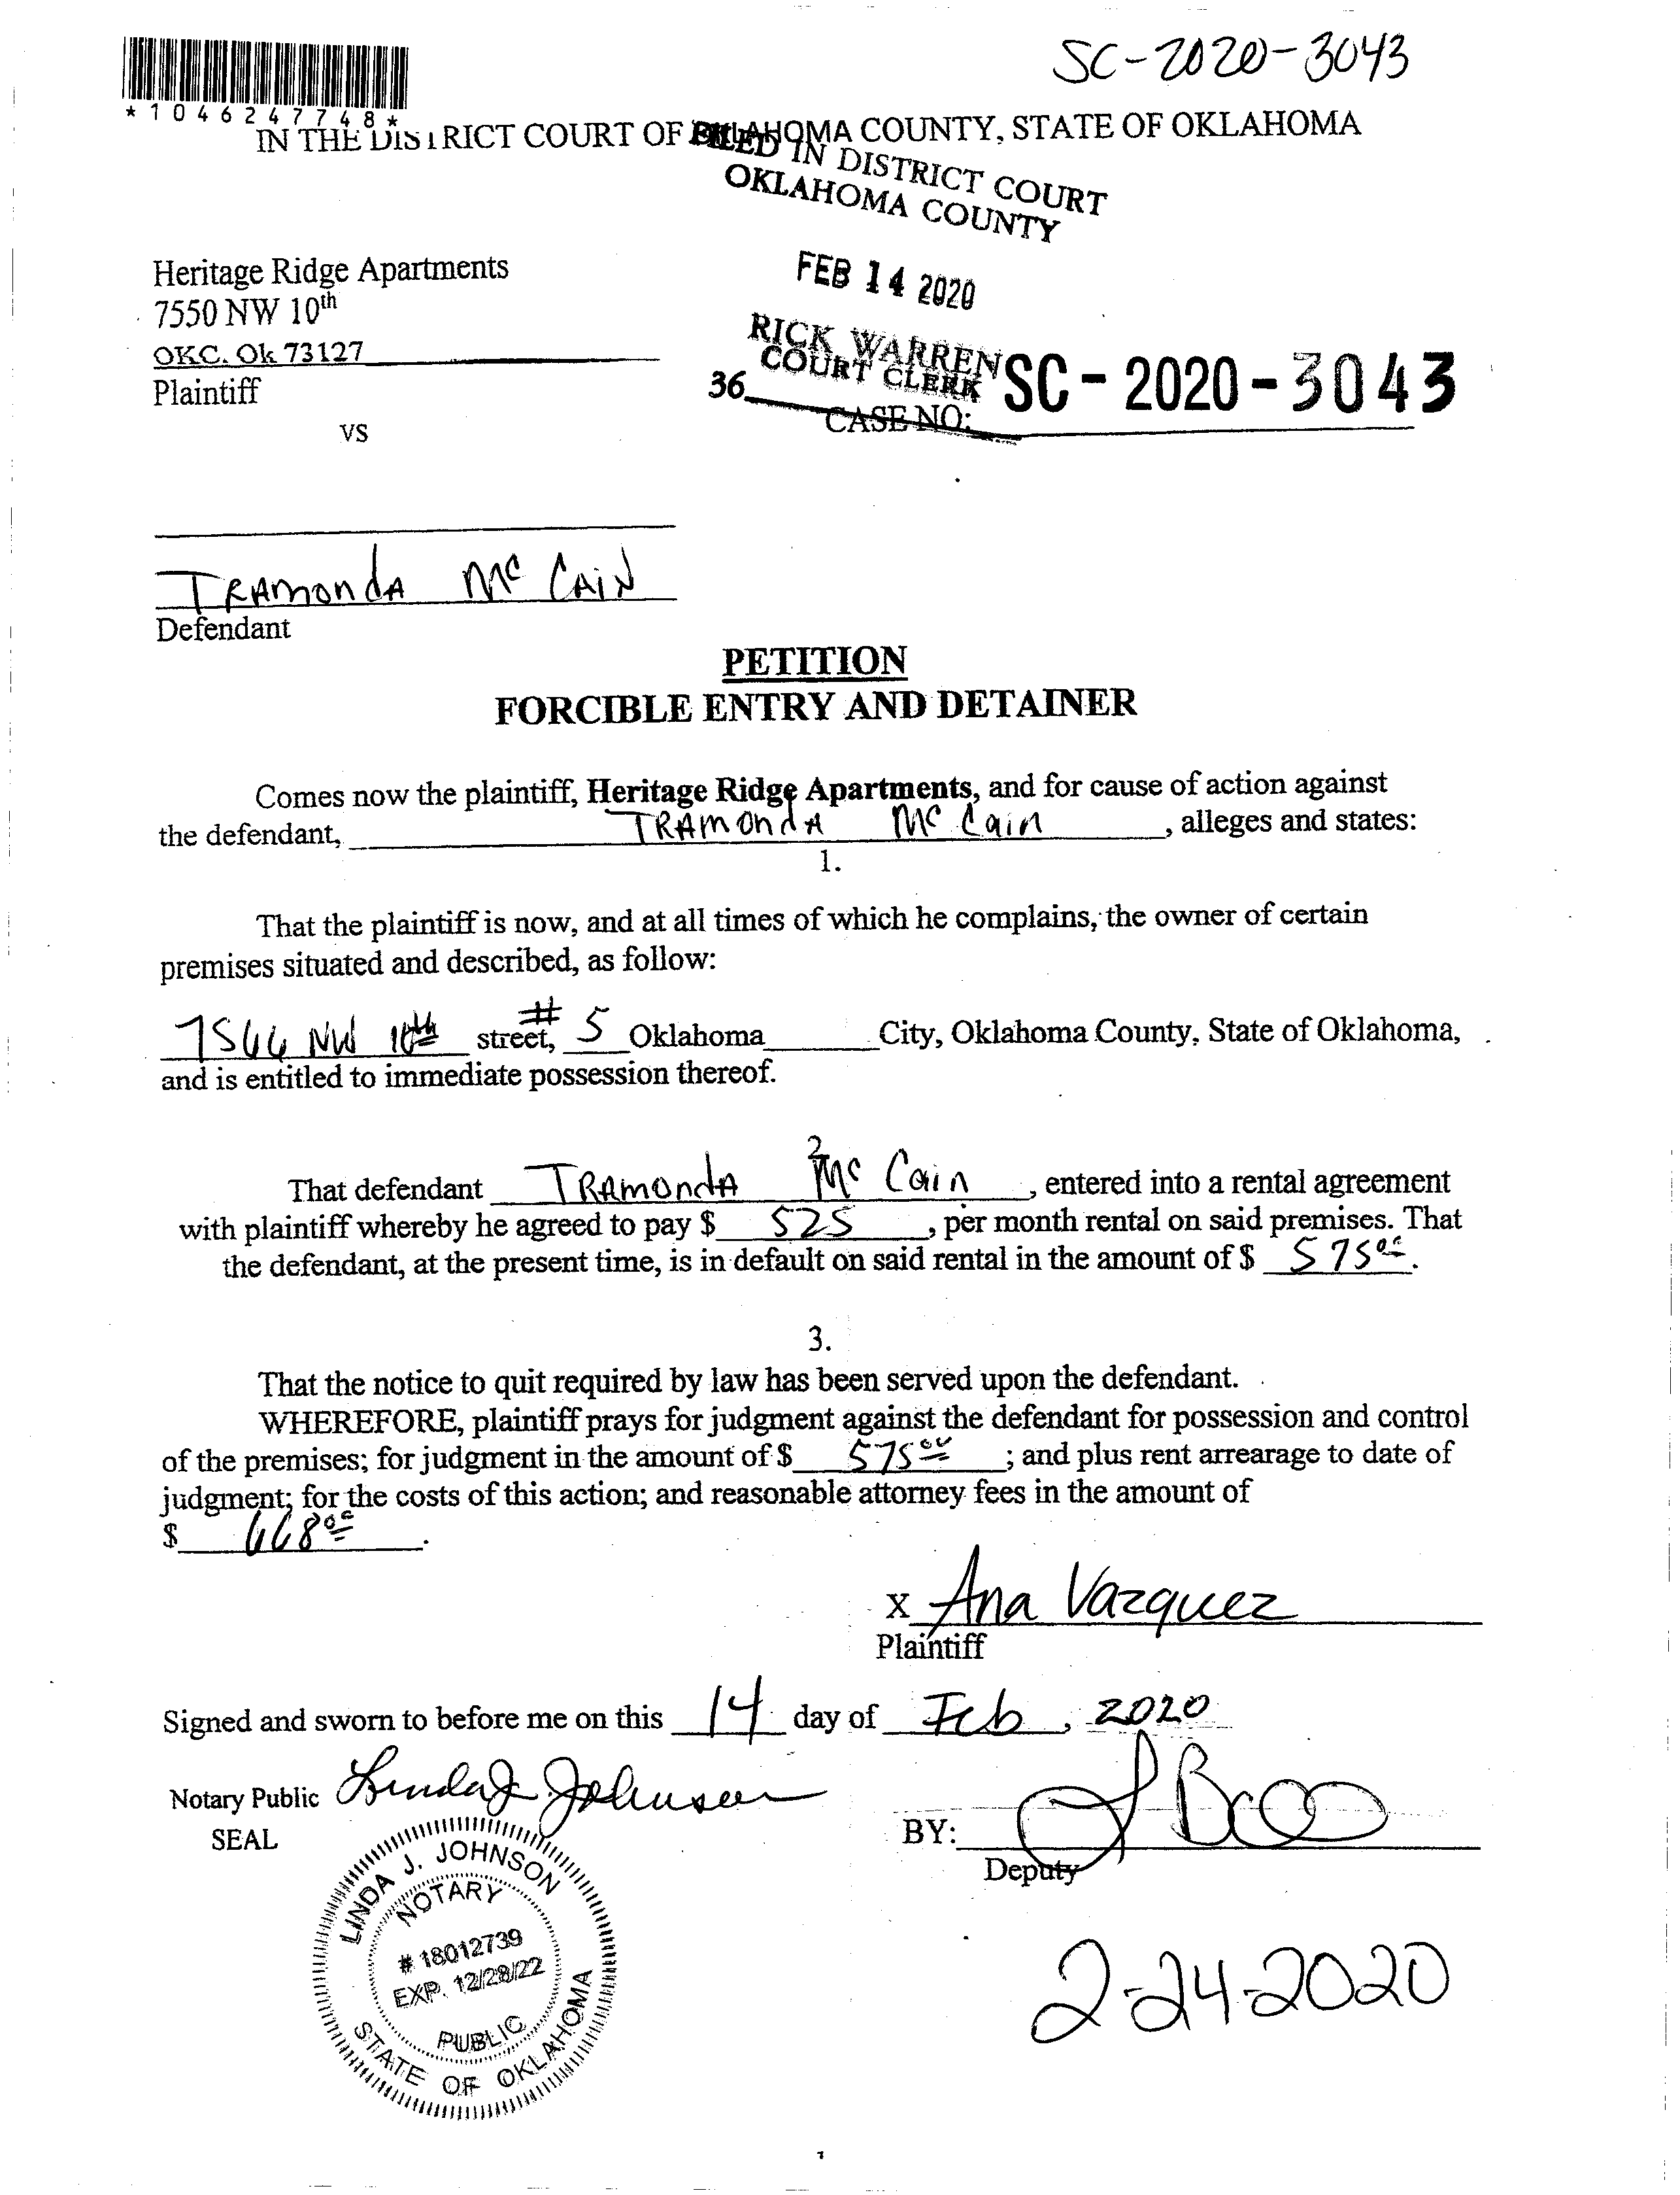 SC-2020-3043
*1046247748*
IN THE DISTRICT COURT OF OKLAHOMA COUNTY, STATE OF OKLAHOMA
FILED IN DISTRICT COURT
OKLAHOMA COUNTY
FEB 14 2020
RICK WARREN
COURT CLERK
36
Heritage Ridge Apartments
7550 NW 10th
OKC. Ok 73127
Plaintiff
CASE NO: SC-2020-3043
vs
TRAmondA Mc CAiN
Defendant
PETITION
FORCIBLE ENTRY AND DETAINER
Comes now the plaintiff, Heritage Ridge Apartments, and for cause of action against
the defendant, TRAmondA Mc Cain, alleges and states:
1.
That the plaintiff is now, and at all times of which he complains, the owner of certain
premises situated and described, as follow:
7566 NW 10th street, # 5 Oklahoma City, Oklahoma County, State of Oklahoma,
and is entitled to immediate possession thereof.
2
That defendant TRAmondA Mc Cain, entered into a rental agreement
with plaintiff whereby he agreed to pay $ 525, per month rental on said premises. That
the defendant, at the present time, is in default on said rental in the amount of $ 575 00.
3.
That the notice to quit required by law has been served upon the defendant.
WHEREFORE, plaintiff prays for judgment against the defendant for possession and control
of the premises; for judgment in the amount of $ 575 00; and plus rent arrearage to date of
judgment; for the costs of this action; and reasonable attorney fees in the amount of
$ 668 00.
X Ana Vazquez
Plaintiff
Signed and sworn to before me on this 14 day of Feb, 2020
Notary Public Linda J Johnson
SEAL
BY:
Deputy
LINDA J. JOHNSON
NOTARY
# 18012739
EXP. 12/28/22
PUBLIC
STATE OF OKLAHOMA
2-24-2020